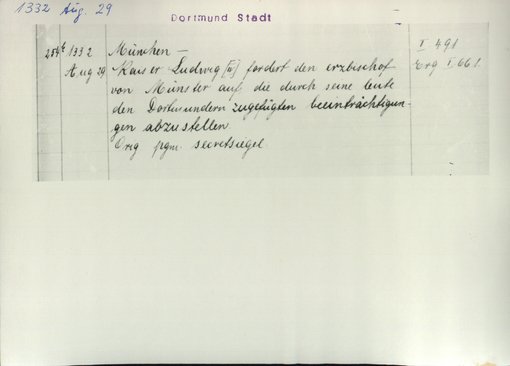 1332 Aug. 29
Dortmund Stadt
1332 München – I 491
Aug 29 Kaiser Ludwig fordert den erzbischof Erg I 661.
von Münster auf, die durch seine leute
den Dortmundern zugefügten beeinträchtigun-
gen abzustellen
Orig pgm. secretsiegel.